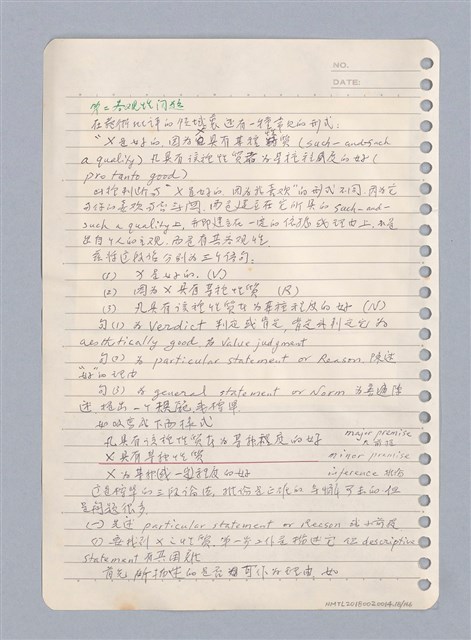 NO.
DATE:
第二 客观性问题
在艺术批评的领域裏还有一种常见的形式:
"X是好的, 因为它具有某种性質 (such-and-such
a quality) 凡具有该种性質者为某种程度的好 (
pro tanto good)
此种判断与"X是好的, 因为我喜欢"的形式不同, 因为它
与你的喜欢与否无关, 而是建立在它所具的 such-and-
such a quality上, 亦即建立在一定的依据或理由上, 不是
出自个人的主观, 而是有其客观性.
兹将这段话分别为三个语句:
(1) X是好的. (V)
(2) 因为X具有某种性質 (R)
(3) 凡具有该种性質者为某种程度的好 (N)
句(1)为Verdict 判定或肯定, 肯定或判定它为
aesthetically good 为 Value judgment
句(2)为 particular statement or Reason, 陈述
"好"的理由
句(3)为 general statement or Norm 为普遍陈
述 提出一个规范或标準
如改写成下面样式
凡具有该种性質者为某种程度的好 major premise 大前提
X具有某种性質 minor premise
X为某种(或一定)程度的好 inference 結論
这是标準的三段论法, 推论是正確的 与解了去的 但
是问题很多
(一) 先述 particular statement or Reason 或小前提
(1) 要找到X之性質, 第一步工作是描述它 但 descriptive
statement 有其困难
首先 所描述的是否均可作为理由, 如
HMTL20150020014.10/46